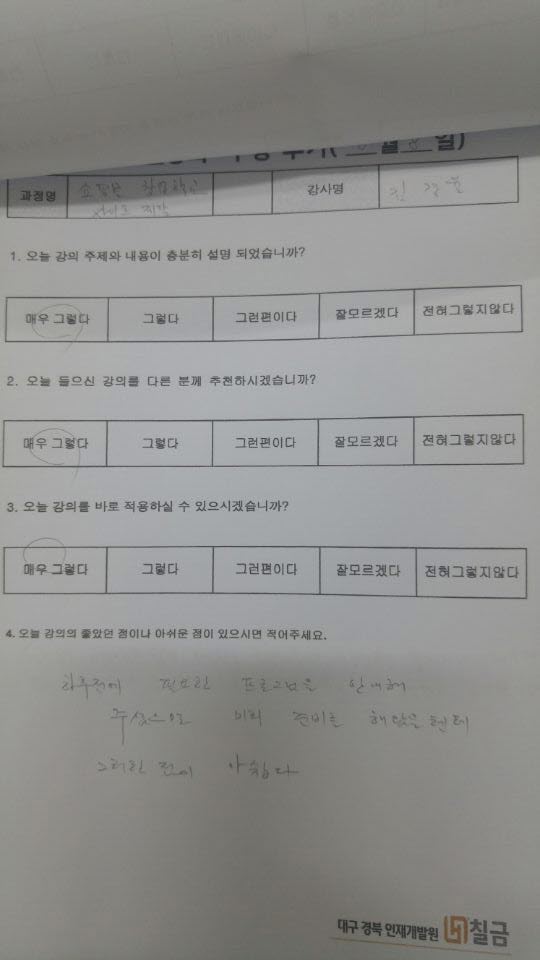 수강 후기( 월 일)
과정명 쇼핑몰 창업학교 강사명 김
사이트 제작
1. 오늘 강의 주제와 내용이 충분히 설명 되었습니까?
매우 그렇다 그렇다 그런편이다 잘모르겠다 전혀그렇지않다
2. 오늘 들으신 강의를 다른 분께 추천하시겠습니까?
매우 그렇다 그렇다 그런편이다 잘모르겠다 전혀그렇지않다
3. 오늘 강의를 바로 적용하실 수 있으시겠습니까?
매우 그렇다 그렇다 그런편이다 잘모르겠다 전혀그렇지않다
4. 오늘 강의의 좋았던 점이나 아쉬운 점이 있으시면 적어주세요.
하루전에 필요한 프로그램을 안내해
주셨으면 미리 준비를 해왔을텐데
그러한 점이 아쉽다
대구 경북 인재개발원 칠금